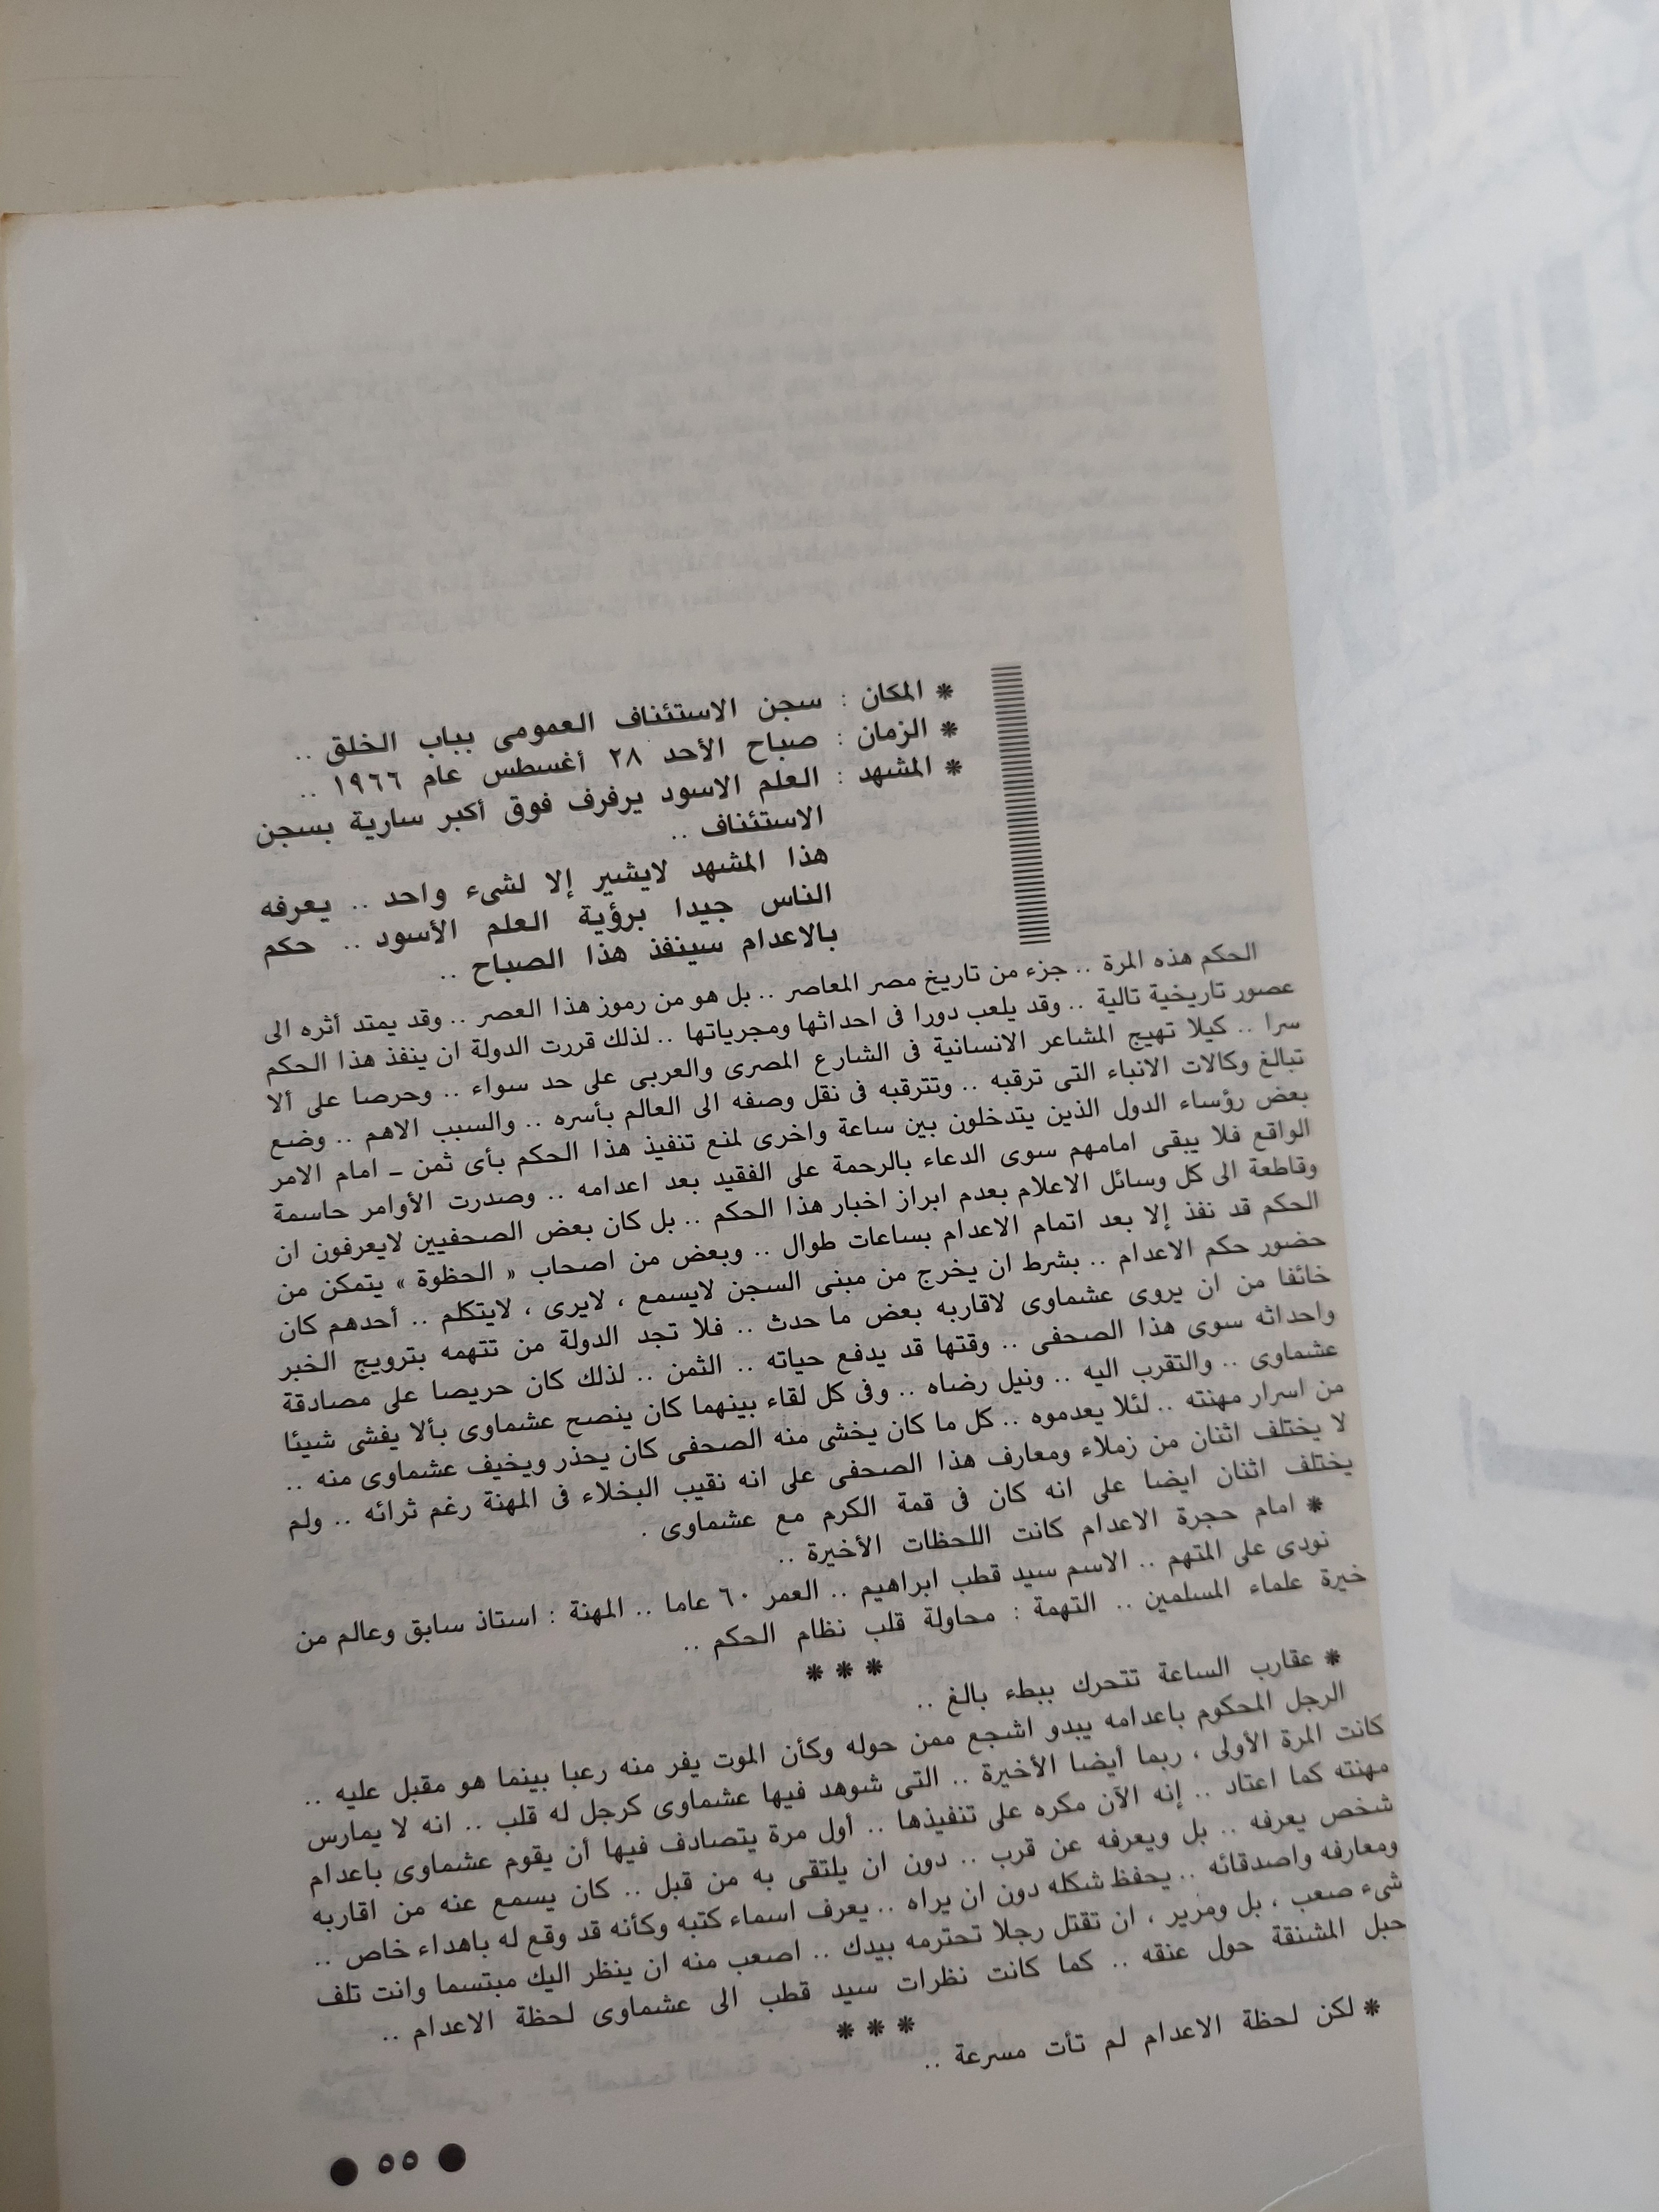 * المكان : سجن الاستئناف العمومى بباب الخلق ..
* الزمان : صباح الأحد ٢٨ أغسطس عام ١٩٦٦ ..
* المشهد : العلم الاسود يرفرف فوق أكبر سارية بسجن
الاستئناف ..
هذا المشهد لايشير إلا لشىء واحد .. يعرفه
الناس جيدا برؤية العلم الأسود .. حكم
بالاعدام سينفذ هذا الصباح ..
الحكم هذه المرة .. جزء من تاريخ مصر المعاصر .. بل هو من رموز هذا العصر .. وقد يمتد أثره الى
عصور تاريخية تالية .. وقد يلعب دورا فى احداثها ومجرياتها .. لذلك قررت الدولة ان ينفذ هذا الحكم
سرا .. كيلا تهيج المشاعر الانسانية فى الشارع المصرى والعربى على حد سواء .. وحرصا على ألا
تبالغ وكالات الانباء التى ترقبه .. وتترقبه فى نقل وصفه الى العالم بأسره .. والسبب الاهم .. وضع
بعض رؤساء الدول الذين يتدخلون بين ساعة واخرى لمنع تنفيذ هذا الحكم بأى ثمن ـ امام الامر
الواقع فلا يبقى امامهم سوى الدعاء بالرحمة على الفقيد بعد اعدامه .. وصدرت الأوامر حاسمة
وقاطعة الى كل وسائل الاعلام بعدم ابراز اخبار هذا الحكم .. بل كان بعض الصحفيين لايعرفون ان
الحكم قد نفذ إلا بعد اتمام الاعدام بساعات طوال .. وبعض من اصحاب « الحظوة » يتمكن من
حضور حكم الاعدام .. بشرط ان يخرج من مبنى السجن لايسمع ، لايرى ، لايتكلم .. أحدهم كان
خائفا من ان يروى عشماوى لاقاربه بعض ما حدث .. فلا تجد الدولة من تتهمه بترويج الخبر
واحداثه سوى هذا الصحفى .. وقتها قد يدفع حياته .. الثمن .. لذلك كان حريصا على مصادقة
عشماوى .. والتقرب اليه .. ونيل رضاه .. وفى كل لقاء بينهما كان ينصح عشماوى بألا يفشى شيئا
من اسرار مهنته .. لئلا يعدموه .. كل ما كان يخشى منه الصحفى كان يحذر ويخيف عشماوى منه ..
لا يختلف اثنان من زملاء ومعارف هذا الصحفى على انه نقيب البخلاء فى المهنة رغم ثرائه .. ولم
يختلف اثنان ايضا على انه كان فى قمة الكرم مع عشماوى .
* امام حجرة الاعدام كانت اللحظات الأخيرة ..
نودى على المتهم .. الاسم سيد قطب ابراهيم .. العمر ٦٠ عاما .. المهنة : استاذ سابق وعالم من
خيرة علماء المسلمين .. التهمة : محاولة قلب نظام الحكم ..
* * *
* عقارب الساعة تتحرك ببطء بالغ ..
الرجل المحكوم باعدامه يبدو اشجع ممن حوله وكأن الموت يفر منه رعبا بينما هو مقبل عليه ..
كانت المرة الأولى ، ربما أيضا الأخيرة .. التى شوهد فيها عشماوى كرجل له قلب .. انه لا يمارس
مهنته كما اعتاد .. إنه الآن مكره على تنفيذها .. أول مرة يتصادف فيها أن يقوم عشماوى باعدام
شخص يعرفه .. بل ويعرفه عن قرب .. دون ان يلتقى به من قبل .. كان يسمع عنه من اقاربه
ومعارفه واصدقائه .. يحفظ شكله دون ان يراه .. يعرف اسماء كتبه وكأنه قد وقع له باهداء خاص ..
شىء صعب ، بل ومرير ، ان تقتل رجلا تحترمه بيدك .. اصعب منه ان ينظر اليك مبتسما وانت تلف
حبل المشنقة حول عنقه .. كما كانت نظرات سيد قطب الى عشماوى لحظة الاعدام ..
* * *
* لكن لحظة الاعدام لم تأت مسرعة ..
● ٥٥ ●